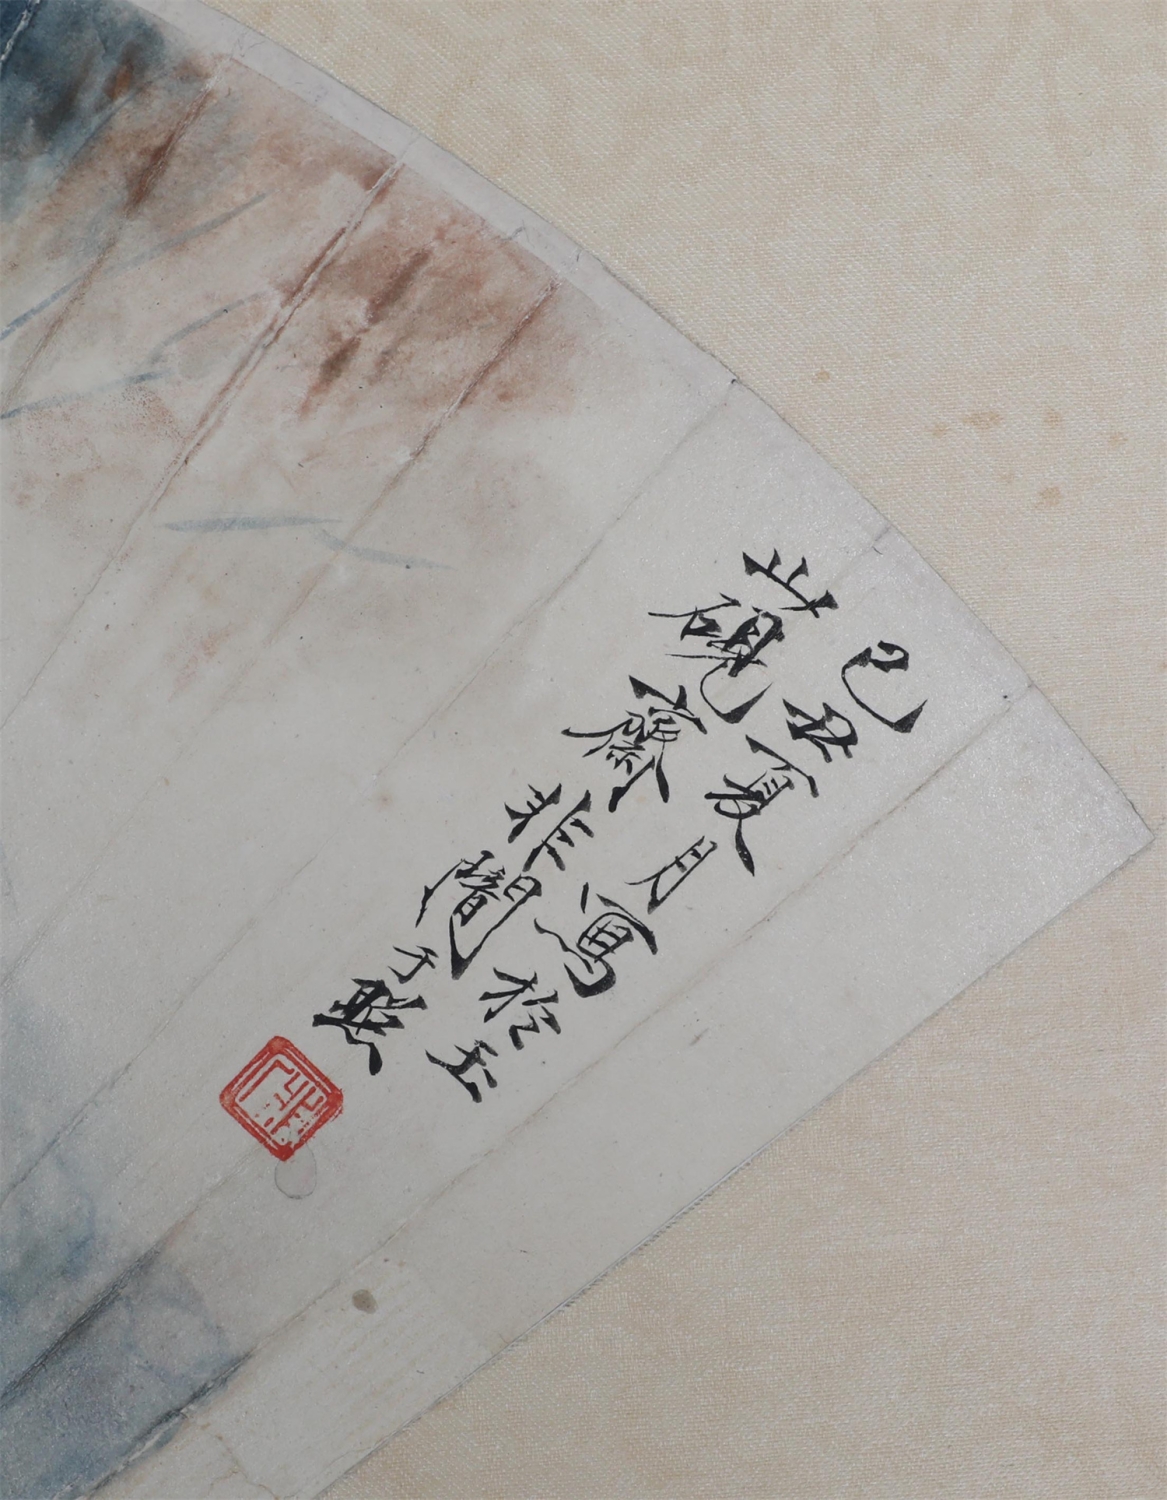 己丑夏月寫於玉
山硯齋非闇于照